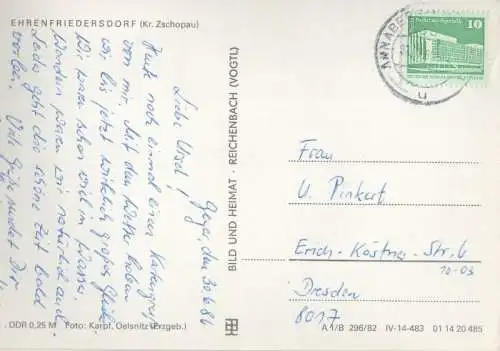 EHRENFRIEDERSDORF (Kr. Zschopau)
Geyer, den 30.6.86
Liebe Ursel!
Heute noch einmal einen Kartengruß
von mir. Mit dem Wetter haben
wir bis jetzt wirklich großes Glück
Wir waren schon viel im Wasser.
Wandern waren wir natürlich auch.
Leider geht die schöne Zeit bald
vorbei. Viele Grüße sendet Dir
DDR 0,25 M Foto: Karpf, Oelsnitz (Erzgeb.)
BILD UND HEIMAT · REICHENBACH (VOGTL)
ANNABERG
10
u
Frau
U. Pinkert
Erich-Kästner-Str. 6
10-03
Dresden
8017
A 1/B 296/82 IV-14-483 01 14 20 485